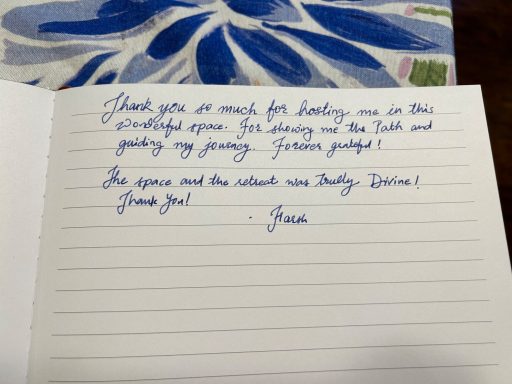 Thank you so much for hosting me in this
wonderful space. For showing me the Path and
guiding my journey. Forever grateful!
The space and the retreat was truely Divine!
Thank You!
- Harsh